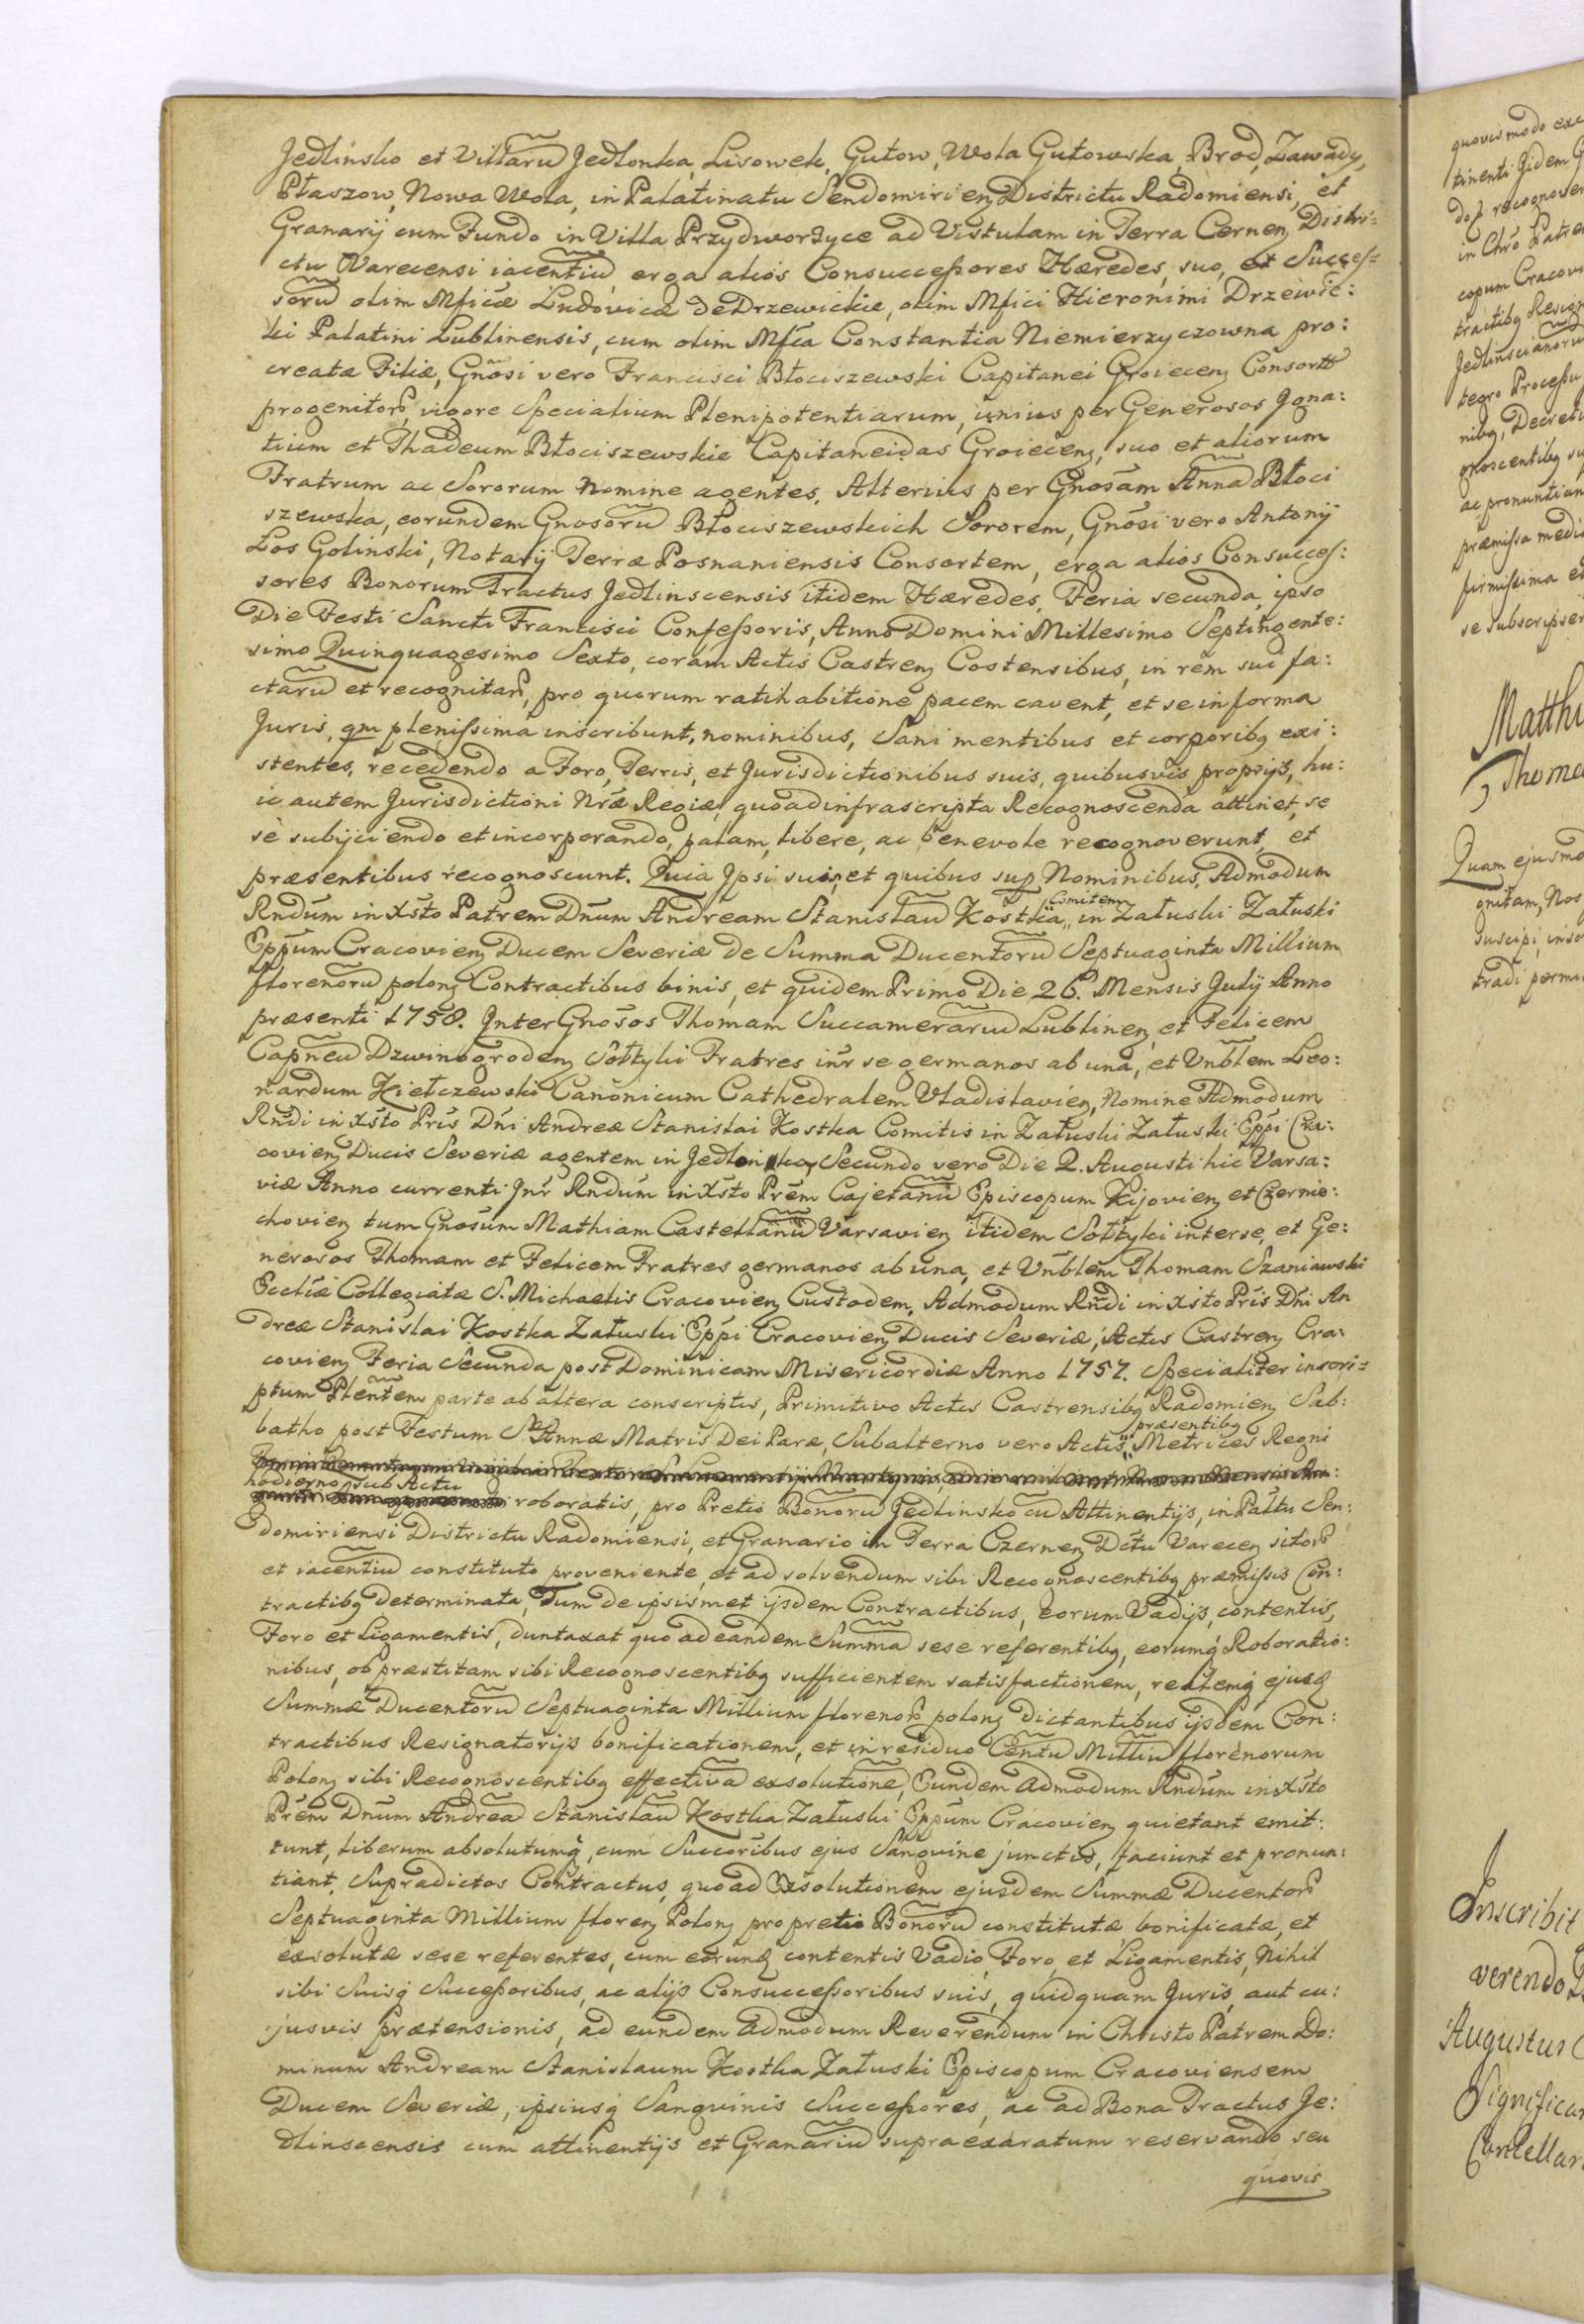 Jedlinsko et Villarū Jedlonka, Lisowek, Gutow, Wola Gutowska, Brod, Zawady,
Płaszow, Nowa Wola, in Palatinatu Sendomirien Districtu Radomiensi, et
Granarij cum Fundo in Villa Przydworzyce ad Vistulam in Terra Cernen Distri:
ctu Varecensi iacentiū, erga alios Consuccessores Hæredes, suo, et Succes:
sorū olim Mficæ Ludovicæ de Drzewickie, olim Mfici Hieronimi Drzewic:
ki Palatini Lublinensis, cum olim Mfca Constantia Niemierzyczowna pro:
creatæ Filiæ, Gnōsi vero Francisci Błociszewski Capitanei Groiecen Consortis
progenitor, vigore Specialium Plenipotentiarum, unius per Generosos Igna:
tium et Thadeum Błociszewskie Capitaneidas Groiecen, suo et aliorum
Fratrum ac Sororum Nomine agentes. Alterius per Gnosam Annā Błoci
szewska, eorundem Gnosorū Błociszewskich Sororem, Gnōsi vero Antonij
Łos Golinski, Notarij Terræ Posnaniensis Consortem, erga alios Consucces:
sores Bonorum Tractus Jedlinscensis itidem Hæredes, Feria secunda, ipso
Die Festi Sancti Francisci Confessoris, Anno Domini Millesimo Septingente:
simo Quinquagesimo Sexto, coram Actis Castren Costensibus, in rem sui fa:
ctarū et recognitar, pro quorum ratihabitione pacem cavent, et se in forma
Juris, qm plenissima inscribunt, nominibus, Sani mentibus et corporibq exi:
stentes, recedendo a Foro, Terris, et Jurisdictionibus suis, quibusvis proprijs, hu:
ic autem Jurisdictioni Nræ Regiæ, quoad infrascripta Recognoscenda attinet, se
se subijciendo et incorporando, palam, libere, ac benevole recognoverunt, et
præsentibus recognoscunt. Quia Ipsi suis, et quibus sup Nominibus, Admodum
Rndūm in Xsto Patrem Dnūm Andream Stanislaū Kostka Comitem in Załuski Załuski
Eppūm Cracovien Ducem Severiæ de Summa Ducentorū Septuaginta Millium
florenorū polon Contractibus binis, et quidem Primo Die 26. Mensis Julij Anno
præsenti 1758. Inter Gnosos Thomam Succamerariū Lublinen, et Felicem
Capneū Dzwinogroden Sołtyki Fratres intr se germanos ab una, et Vnblem Leo:
nardum Kiełczewski Canonicum Cathedralem Vladislavien, Nomine Admodum
Rndi in Xsto Pris Dni Andreæ Stanislai Kostka Comitis in Załuski Załuski Eppi Cra:
covien Ducis Severiæ agentem in Jedlonka, Secundo vero Die 2. Augusti hic Varsa:
viæ Anno currenti Intr Rndūm in Xsto Prēm Cajetanū Episcopum Kijovien et Czernie:
chovien tum Gnosūm Mathiam Castellanū Varsavien itidem Sołtyki inter se, et Ge:
nerosos Thomam et Felicem Fratres germanos ab una, et Vnblem Thomam Szaniawski
Eccliæ Collegiatæ S. Michaelis Cracovien Custodem, Admodum Rndi in Xsto Pris Dni An
dreæ Stanislai Kostka Załuski Eppi Cracovien Ducis Severiæ, Actis Castren Cra:
covien Feria Secunda post Dominicam Misericordiæ Anno 1757. Specialiter inscri:
ptum Plentem parte ab altera conscriptis, Primitivo Actis Castrensibq Radomien Sab:
batho post Festum Stæ Annæ Matris Dei Paræ, Subalterno vero Actis præsentibq Metrices Regni
hodierno sub Actu roboratis, pro Pretio Bonorū Jedlinsko cū Attinentijs, in Palttu Sen:
domiriensi Districtu Radomiensi, et Granario in Terra Czernen Dctu Varecen sitor
et iacentiū constituto proveniente, et ad solvendum sibi Recognoscentibq præmissis Con:
tractibq determinata, Tum de ipsismet ijsdem Contractibus, eorum Vadijs, contentis,
Foro et Ligamentis, duntaxat quo ad eandem Summā sese referentibq, eorumq Roboratio:
nibus, ob præstitam sibi Recognoscentibq sufficientem satisfactionem, realemq ejusd
Summæ Ducentorū Septuaginta Millium florenor polon dictantibus ijsdem Con:
tractibus Resignatorijs bonificationem, et in residuo Centū Milliū florenorum
Polon sibi Recognoscentibq effectivā exsolutionē, Eundem Admodum Rndūm in Xsto
Prēm Dnūm Andreā Stanislaū Kostka Załuski Eppūm Cracovien quietant emit:
tunt, liberum absolutumq, cum Succoribus ejus Sangvine junctis, faciunt et pronun:
tiant. Supradictos Contractus, quo ad Exsolutionem ejusdem Summæ Ducentor
Septuaginta Millium floren Polon pro pretio Bonorū constitutæ bonificatæ, et
exsolutæ sese referentes, cum eorund contentis Vadio, Foro et Ligamentis, Nihil
sibi Suisq Successoribus, ac alijs Consuccessoribus suis, quidquam Juris, aut cu:
jusvis prætensionis, ad eundem Admodum Reverendum in Christo Patrem Do:
minum Andream Stanislaum Kostka Załuski Episcopum Cracoviensem
Ducem Severiæ, ipsiusq Sangvinis Successores, ac ad Bona Tractus Je:
dlinscensis cum attinentijs et Granariū supra exaratum reservando seu
quovis
quovis modo exc
tinenti Jidem G
in Chro Patre
copum Cracovi
tractibq Resign
Jedlinscianorū
tegro Processu
nibq, Decreti
gnoscentibq su
ac pronuntian
præmissa medi
firmissima et
se subscripser
Matthi
Thoma
Quam ejusmo
gnitam, Nos
suscipi, insc
tradi permi
Inscribit
verendo
Augustus
Significa
Cancellar